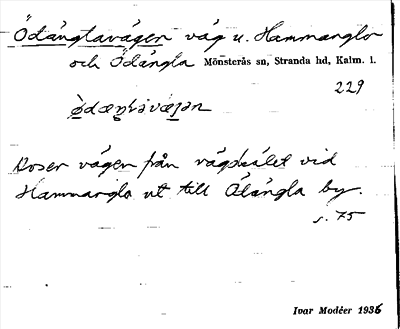 Ödänglavägen väg u. Hammarglo
och Ödängla Mönsterås sn, Stranda hd, Kalm. l.
229
vägen från vägskälet vid
Hammarglo ut till Ålängla by.
s. 75
Ivar Modéer 1936